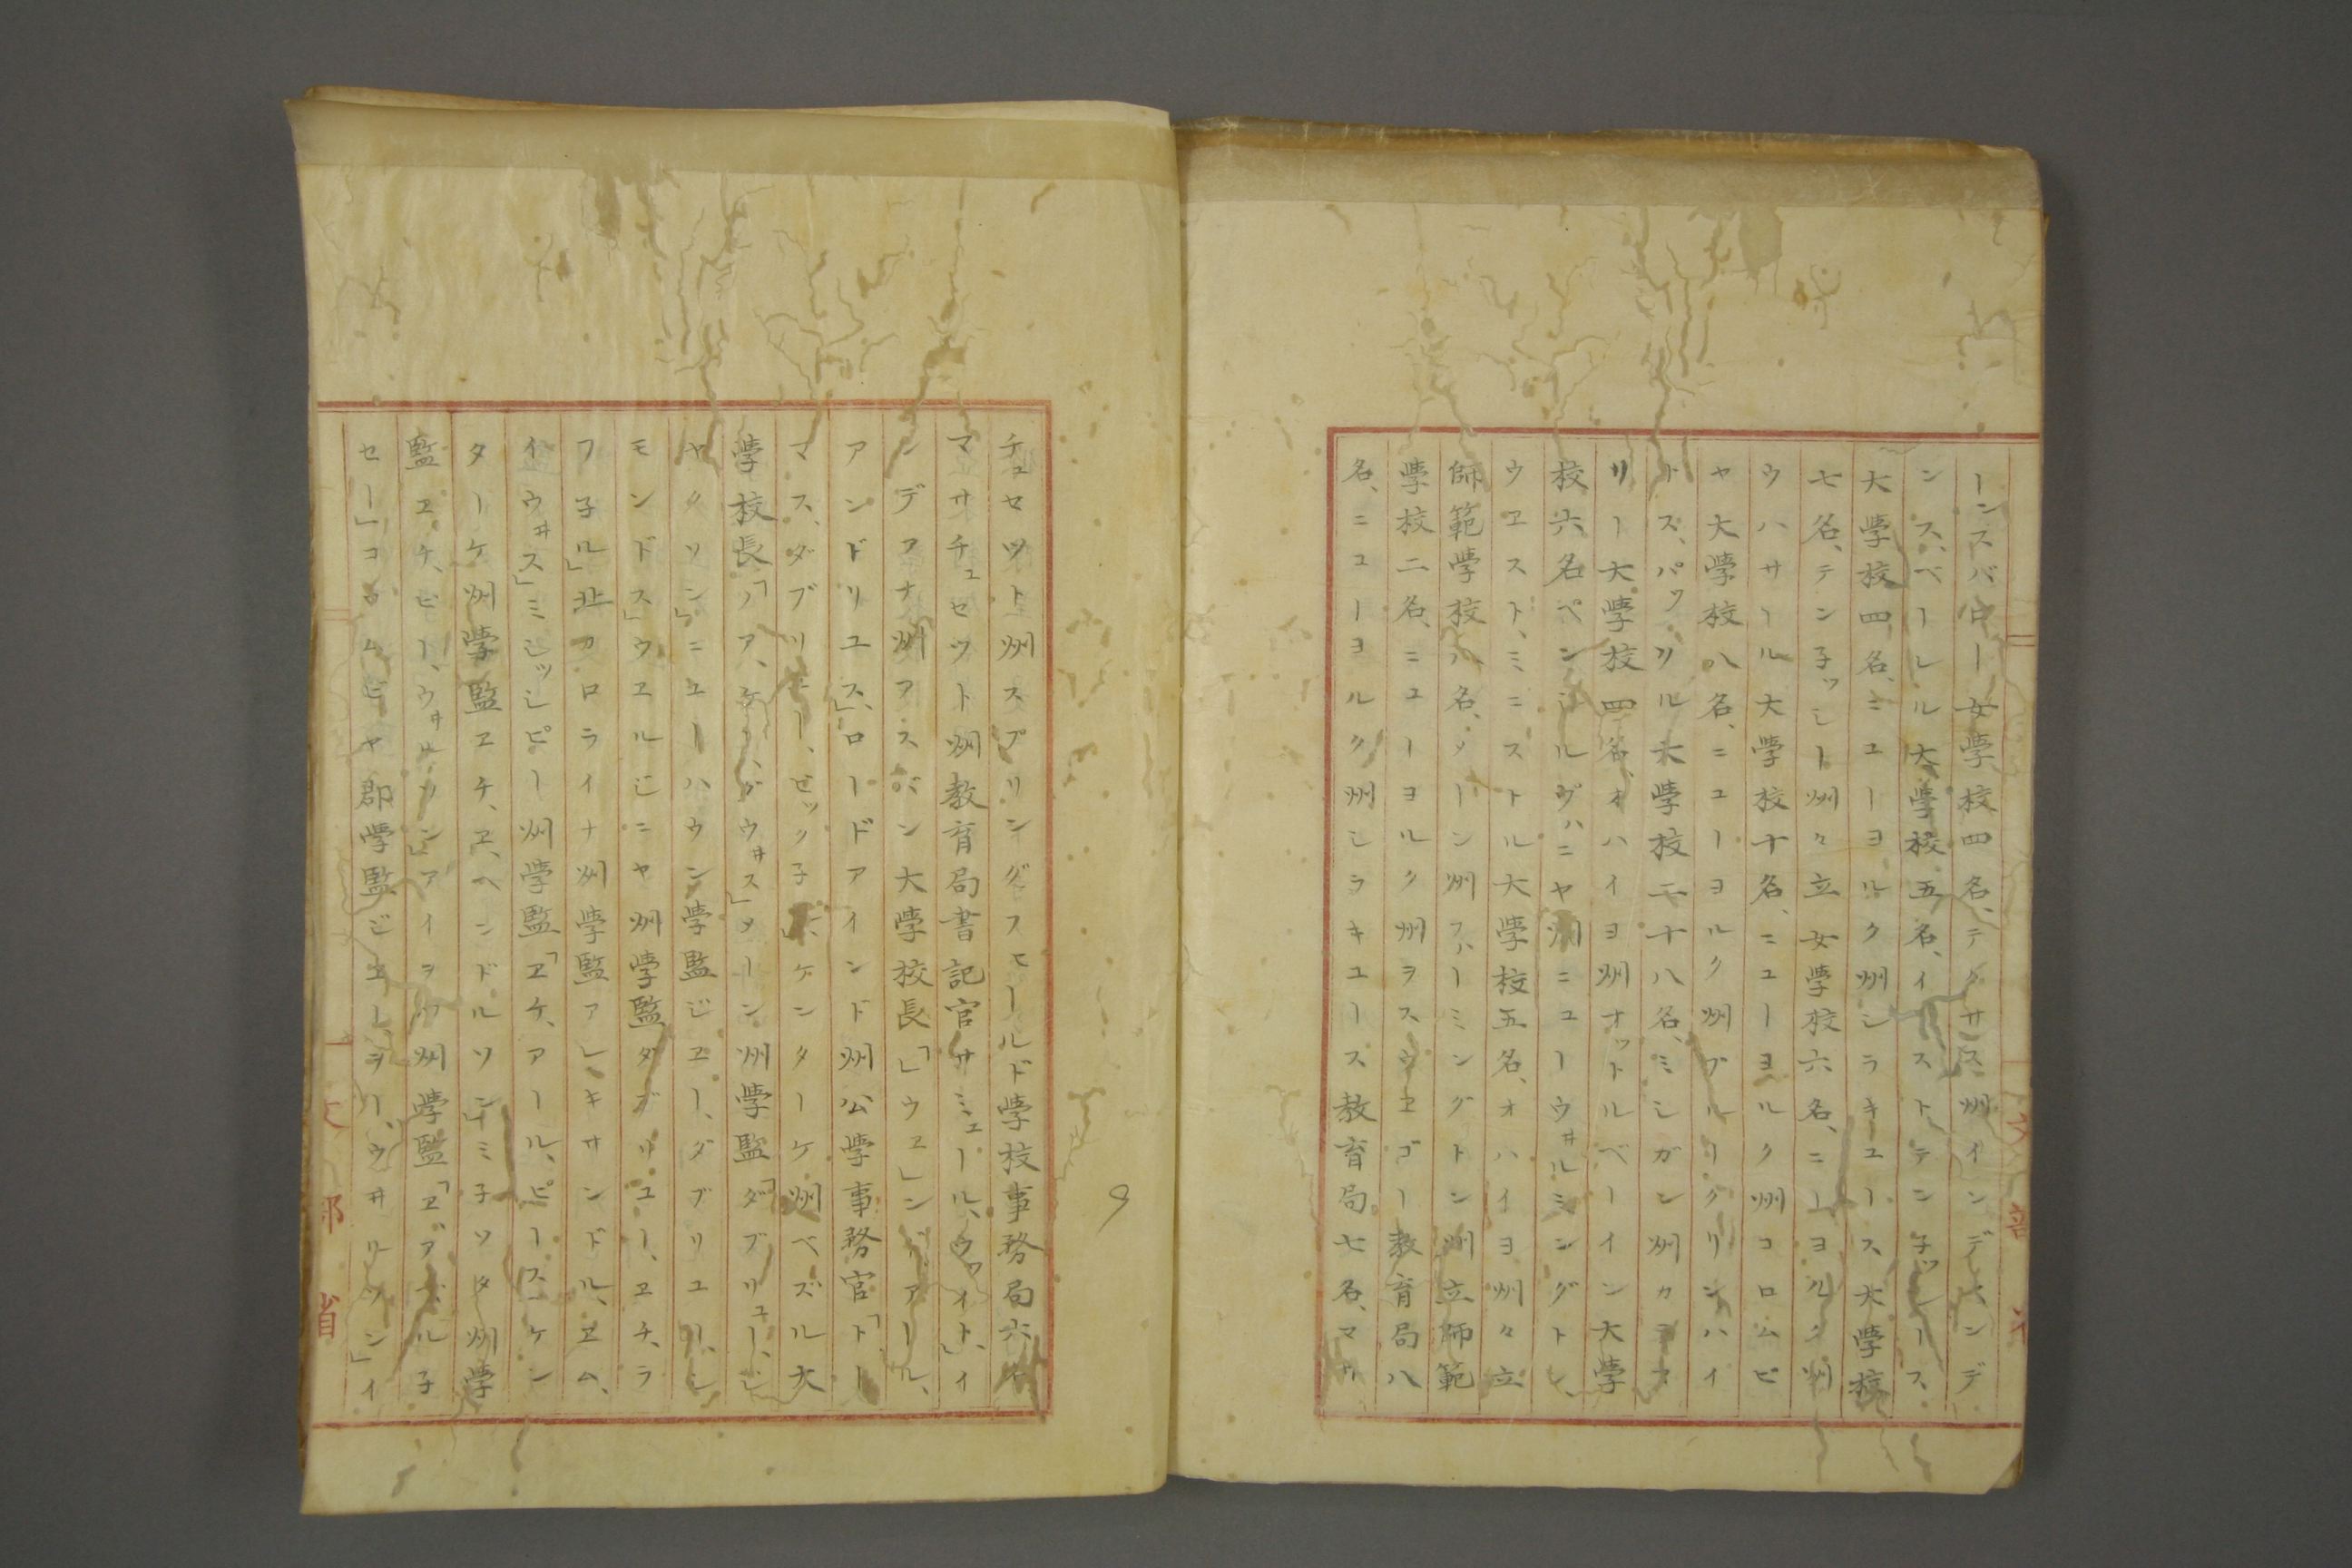 ーンスバロー女学校四名、テクサス州インデペンデ
ンス、ベーレル大学校五名、イストテン子ッシース
大学校四名、ニユーヨルク州シラキユース大学校
七名、テン子ッシー州々立女学校六名、ニユーヨルク州
ウハサール大学校十名、ニユーヨルク州コロムビ
ヤ大学校八名、ニユーヨルク州ブルークリンハイ
トス、パッカル大学校二十八名、ミシガン州カラマ
リー大学校四名、オハイヨ州オットルベーイン大学
校六名ペンシルヴハニヤ州ニユーウ井ルミングトン、
ウエストミニストル大学校五名、オハイヨ州々立
師範学校八名、メーン州フハーミングトン州立師範
学校二名、ニユーヨルク州ヲスウエゴー教育局八
名、ニユーヨルク州シラキユース教育局七名、マサ
チュセット州スプリングフヒールド学校事務局六名
マサチュセット州教育局書記官サミュール、ウワイト」イ
ンデアナ州アスバン大学校長「レウエ」ンドアール、
アンドリユス」、ロードアインド州公学事務官「トー
マス、ダブリユー、ビック子ル」、ケンターケ州ベズル大
学校長「ノア、ケー、デヴ井ス」メーン州学監「ダブリユー、ジ
ヤクソン」、ニユーハウン学監ジエー、ダブリユー、シ
モンドス」ウエルジニヤ州学監ダブリユー、エチ、ラ
フ子ル」北カロライナ州学監アレキサンドル、エム、
イウ井ス」ミシッシピー州学監「エチ、アール、ピースケン
ターケ州学監エチ、エ、ヘンドルソン」ミ子ソタ州学
監エチ、ビー、ウ井ルソン」アイヲワ州学監「エ」アベル子
セー」コロムビヤ郡学監ジエー、ヲー、ウ井リソン」イ
文部省
9